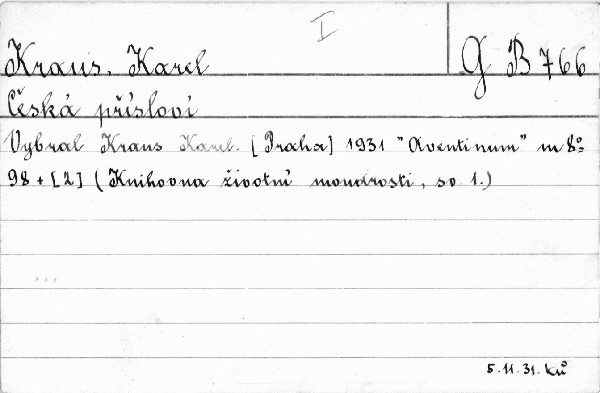 I
Kraus, Karel
G B 766
Česká přísloví
Vybral Kraus Karel. [Praha] 1931 "Aventinum" m 8º
98 + [2] (Knihovna životní moudrosti, sv 1.)
5.11.31. Ků